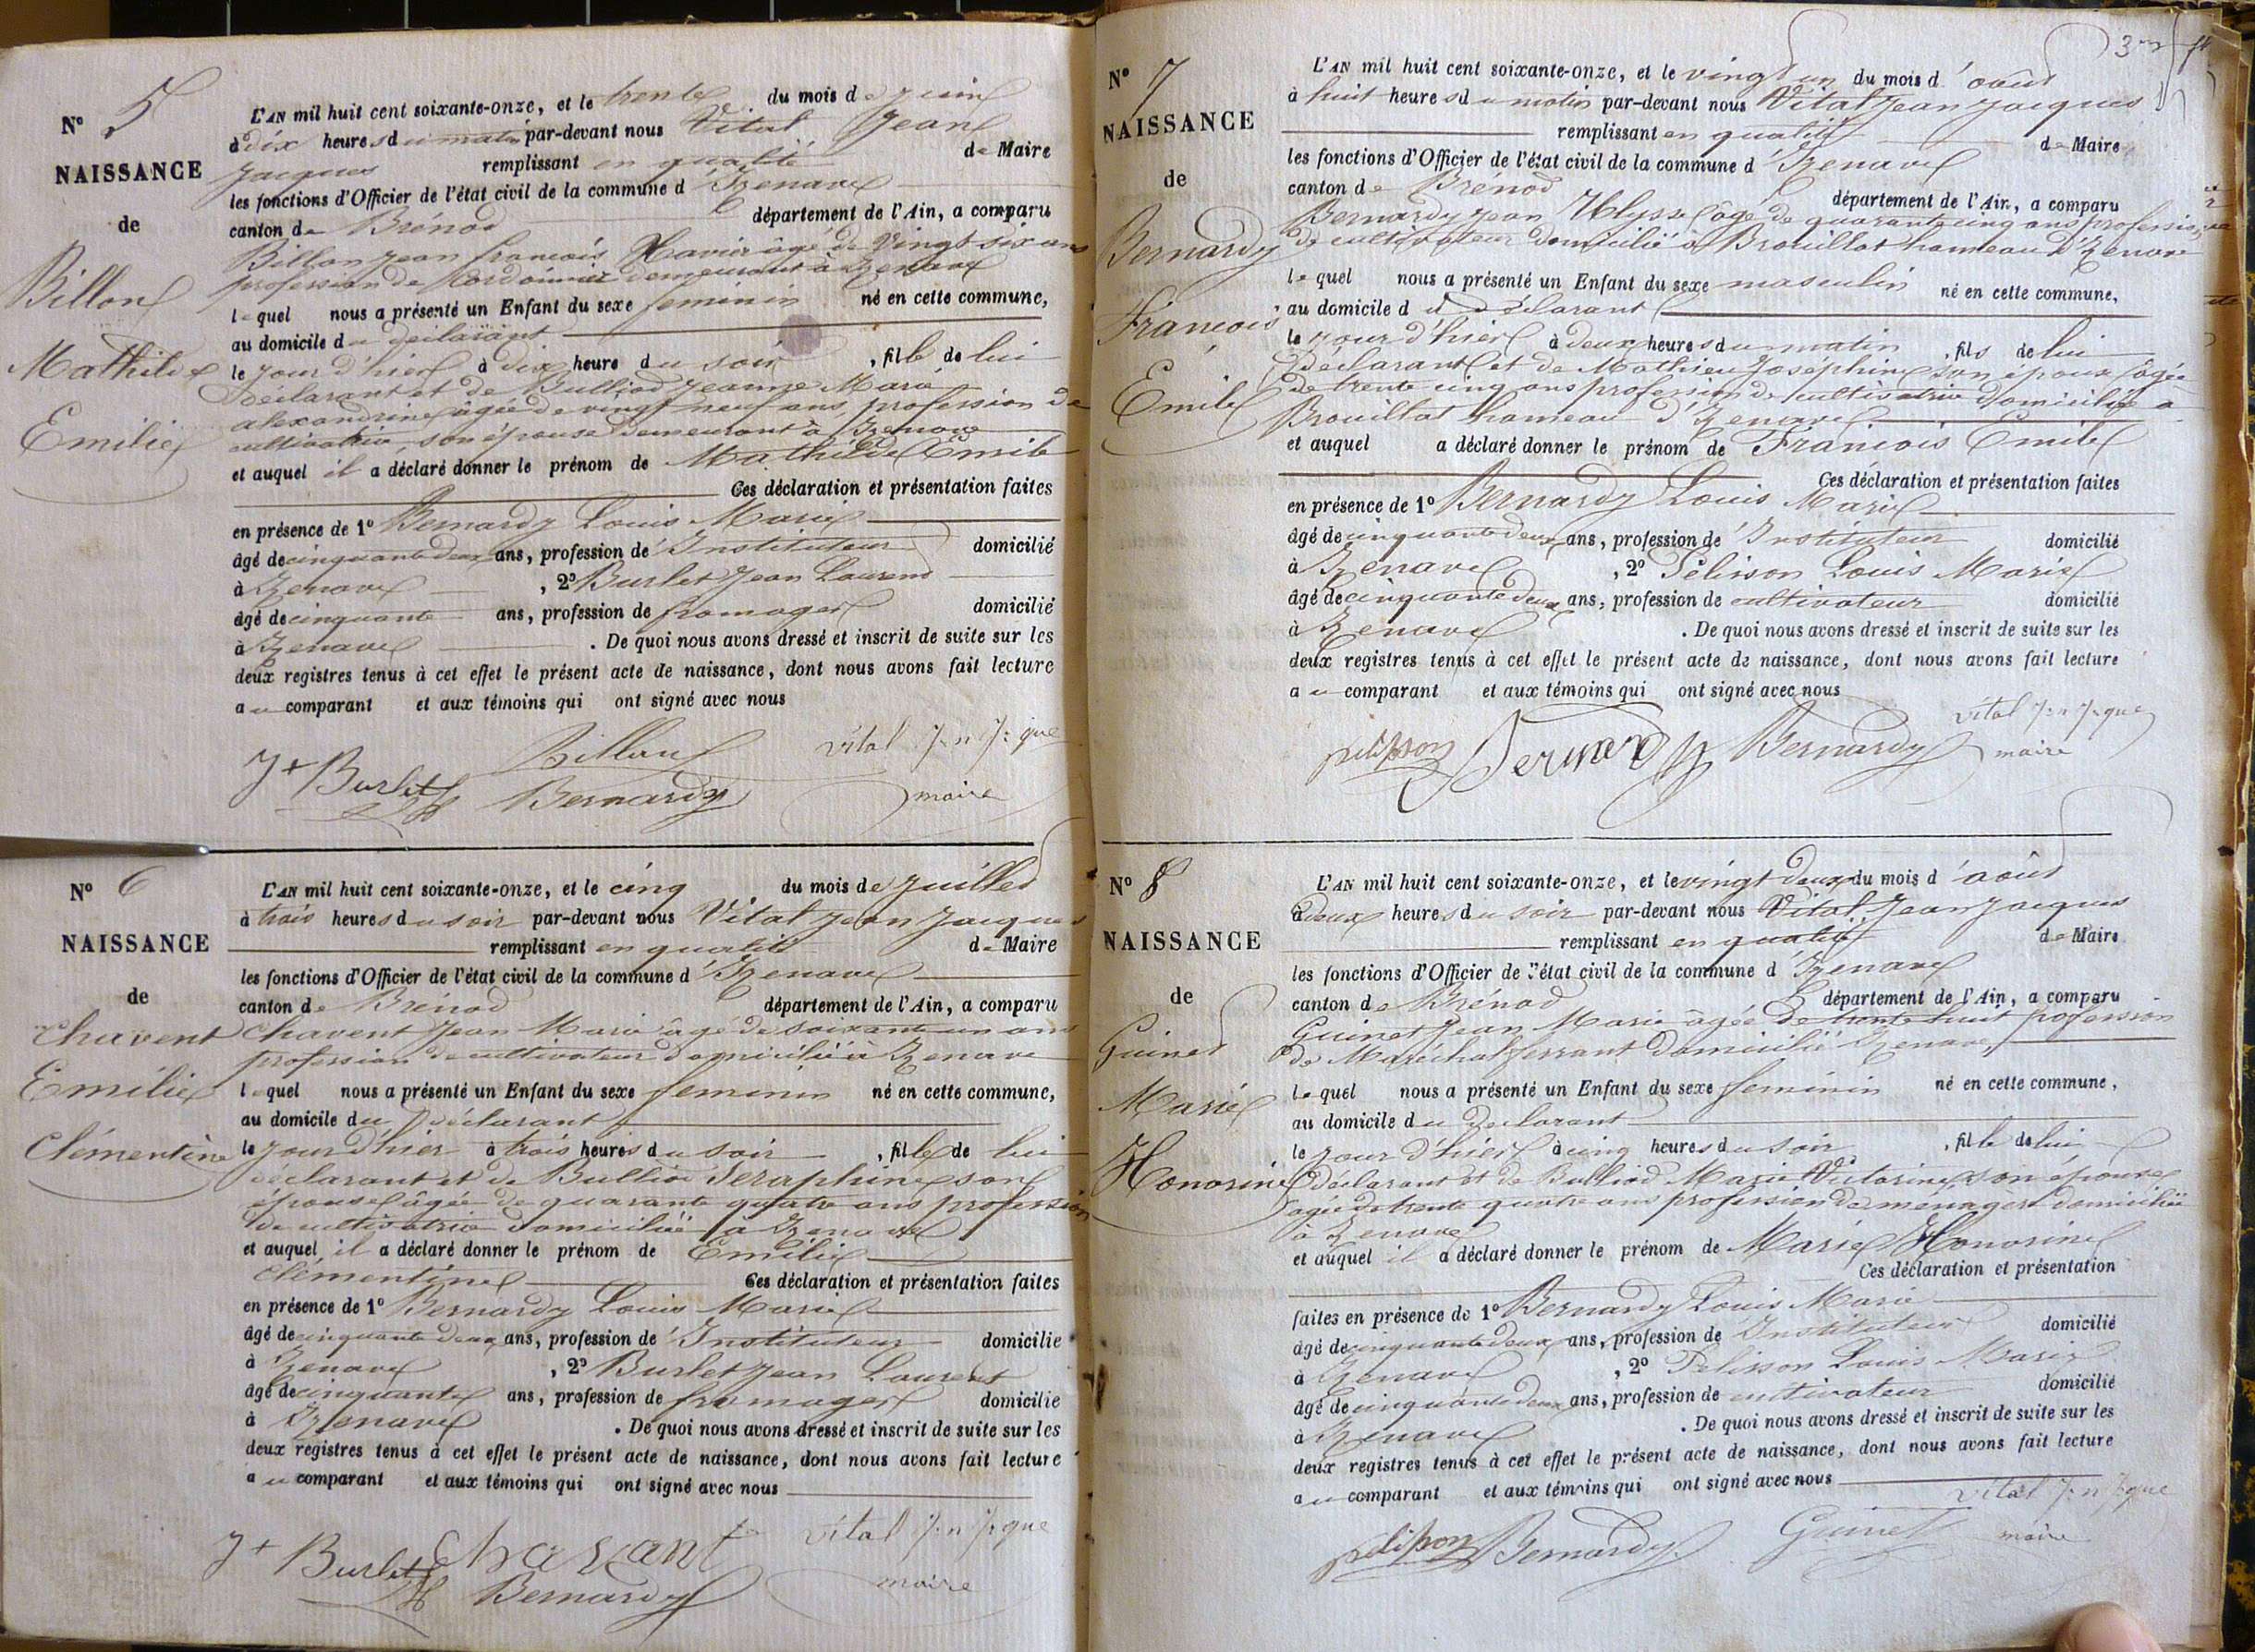 N° 5
NAISSANCE
de
Billon
Mathilde
Emilie
L'AN mil huit cent soixante-onze, et le trente du mois de juin
à dix heures du matin par-devant nous Vital Jean
Jacques remplissant en qualité de Maire
les fonctions d'Officier de l'état civil de la commune d'Izenave
canton de Brénod département de l'Ain, a comparu
Billon Jean françois Xavier âgé de vingt six ans
profession de Cordonnier demeurant à Izenave
lequel nous a présenté un Enfant du sexe feminin né en cette commune,
au domicile du déclarant
le jour d'hier à dix heure du soir, fille de lui
déclarant et de Bulliod Jeanne Marie
alexandrine âgée de vingt neuf ans, profession de
cultivatrice son épouse demeurant à Izenave
et auquel il a déclaré donner le prénom de Mathilde Emilie
Ces déclaration et présentation faites
en présence de 1° Bernardy Louis Marie
âgé de cinquante deux ans, profession de Instituteur domicilié
à Izenave, 2° Burlet Jean Laurend
âgé de cinquante ans, profession de fromager domicilié
à Izenave. De quoi nous avons dressé et inscrit de suite sur les
deux registres tenus à cet effet le présent acte de naissance, dont nous avons fait lecture
au comparant et aux témoins qui ont signé avec nous
Billon vital Jn Jque
Jt Burlet Bernardy maire
N° 6
NAISSANCE
de
Chavent
Emélie
Clémentine
L'AN mil huit cent soixante-onze, et le cinq du mois de juillet
à trois heures du soir par-devant nous Vital Jean Jacques
remplissant en qualité de Maire
les fonctions d'Officier de l'état civil de la commune d'Izenave
canton de Brénod département de l'Ain, a comparu
Chavent Jean Marie âgé de soixante un ans
profession de cultivateur domicilié à Izenave
lequel nous a présenté un Enfant du sexe feminin né en cette commune,
au domicile du déclarant
le jour d'hier à trois heures du soir, fille de lui
déclarant et de Bullion Seraphine son
épouse âgée de quarante quatre ans profession
de cultivatrice domiciliée à Izenave
et auquel il a déclaré donner le prénom de Emélie
Clémentine Ces déclaration et présentation faites
en présence de 1° Bernardy Louis Marie
âgé de cinquante deux ans, profession de Instituteur domicilié
à Izenave, 2° Burlet Jean Laurent
âgé de cinquante ans, profession de fromager domicilié
à Izenave. De quoi nous avons dressé et inscrit de suite sur les
deux registres tenus à cet effet le présent acte de naissance, dont nous avons fait lecture
au comparant et aux témoins qui ont signé avec nous
Jt Burlet Chavant vital Jn Jque
Bernardy maire
N° 7
NAISSANCE
de
Bernardy
François
Emile
L'AN mil huit cent soixante-onze, et le vingt un du mois d'août
à huit heures du matin par-devant nous Vital Jean Jacques
remplissant en qualité de Maire
les fonctions d'Officier de l'état civil de la commune d'Izenave
canton de Brénod département de l'Ain, a comparu
Bernardy Jean Ulysse âgé de quarante cinq ans profession
de cultivateur domicilié à Brouillat hameau d'Izenave
lequel nous a présenté un Enfant du sexe masculin né en cette commune,
au domicile du déclarant
le jour d'hier à deux heures du matin, fils de lui
déclarant et de Mathieu Joséphine son épouse âgée
de trente cinq ans profession de cultivatrice domiciliée à
Brouillat hameau d'Izenave
et auquel a déclaré donner le prénom de François Emile
Ces déclaration et présentation faites
en présence de 1° Bernardy Louis Marie
âgé de cinquante deux ans, profession de Instituteur domicilié
à Izenave, 2° Pélisson Louis Marie
âgé de cinquante deux ans, profession de cultivateur domicilié
à Izenave. De quoi nous avons dressé et inscrit de suite sur les
deux registres tenus à cet effet le présent acte de naissance, dont nous avons fait lecture
au comparant et aux témoins qui ont signé avec nous
pelisson Bernardy Bernardy vital Jn Jque
maire
N° 8
NAISSANCE
de
Guinet
Marie
Honorine
L'AN mil huit cent soixante-onze, et le vingt deux du mois d'août
à deux heures du soir par-devant nous Vital Jean Jacques
remplissant en qualité de Maire
les fonctions d'Officier de l'état civil de la commune d'Izenave
canton de Brénod département de l'Ain, a comparu
Guinet Jean Marie âgée de trente huit profession
de Maréchal ferrant domicilié Izenave,
lequel nous a présenté un Enfant du sexe feminin né en cette commune,
au domicile du declarant
le jour d'hier à cinq heures du soir, fille de lui
déclarant et de Bulliod Marie Victorine son épouse
agée de trente quatre ans profession de ménagère domiciliée
à Izenave
et auquel il a déclaré donner le prénom de Marie Honorine
Ces déclaration et présentation
faites en présence de 1° Bernardy Louis Marie
âgé de cinquante deux ans, profession de Instituteur domicilié
à Izenave, 2° Pelisson Louis Marie
âgé de cinquante deux ans, profession de cultivateur domicilié
à Izenave. De quoi nous avons dressé et inscrit de suite sur les
deux registres tenus à cet effet le présent acte de naissance, dont nous avons fait lecture
au comparant et aux témoins qui ont signé avec nous
pelisson Bernardy Guinet vital Jn Jque
maire